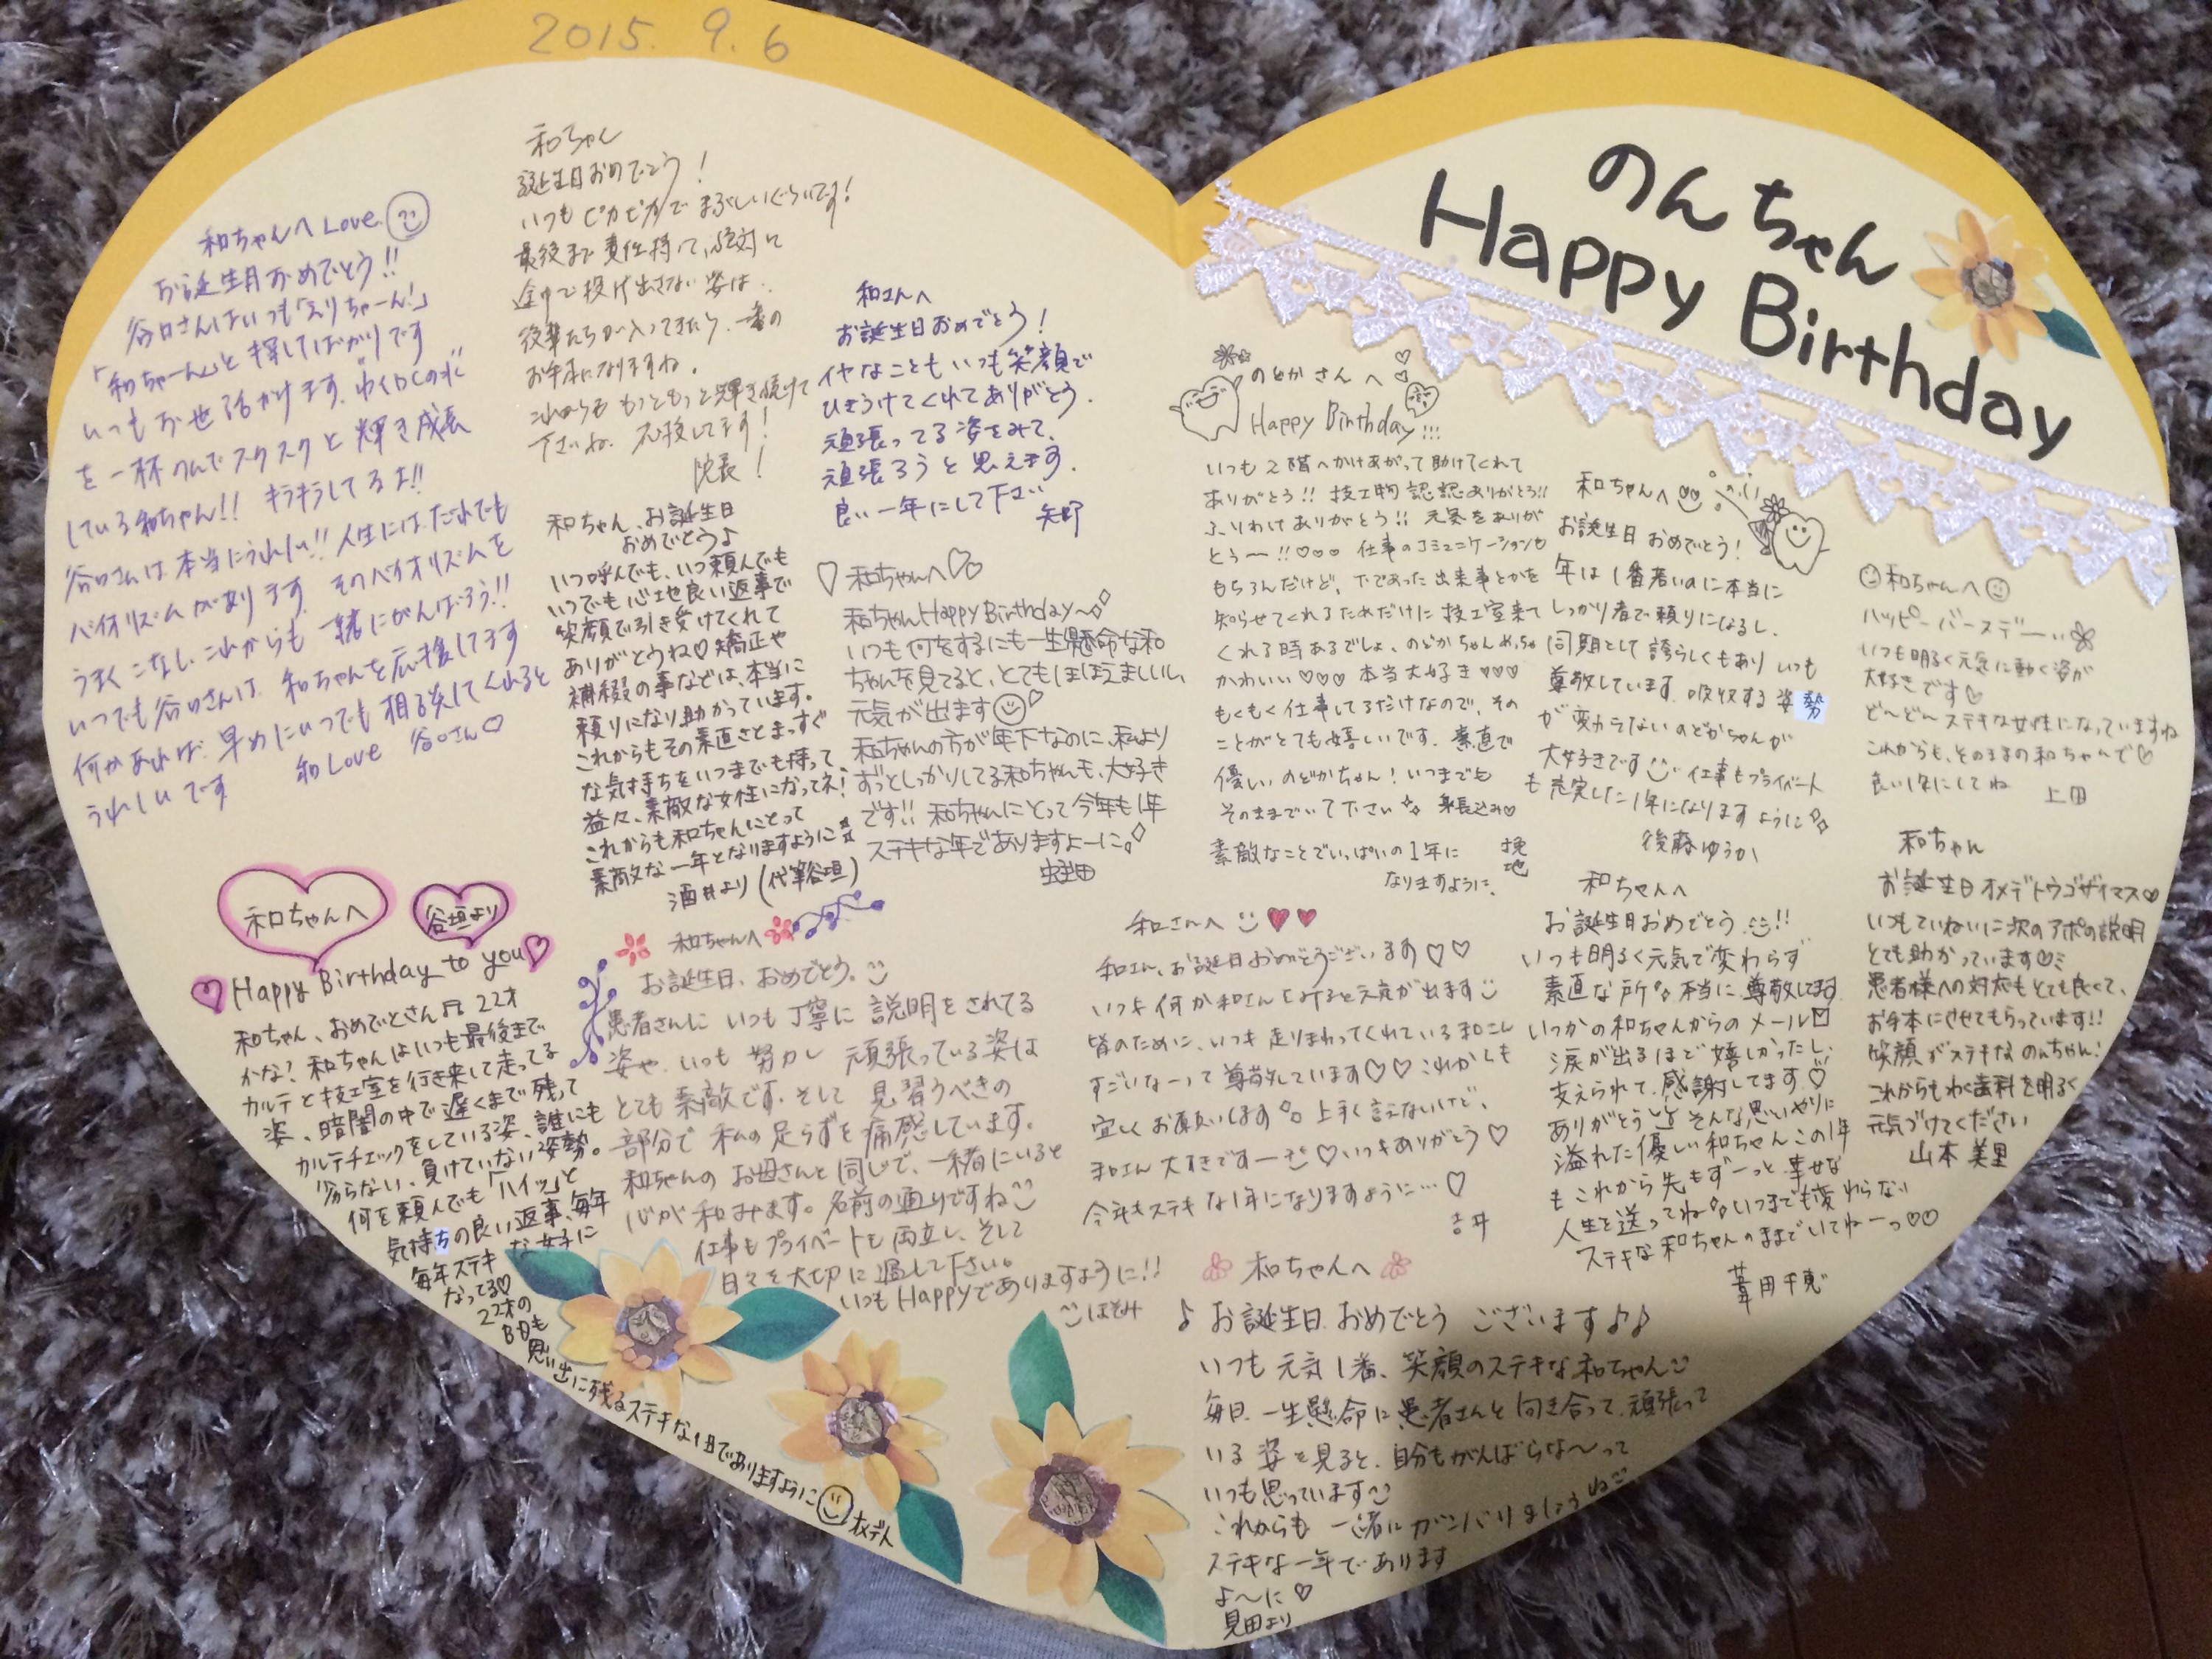 2015. 9. 6
のんちゃん
Happy Birthday
和ちゃんへ Love
お誕生日おめでとう!!
谷口さんはいつも「えりちゃーん!」
「和ちゃーん」と探してばかりです
いつもお世話かけます。わくわくの水"
を一杯のんでスクスクと輝き成長
している和ちゃん!! キラキラしてるよ!!
谷口さんは本当にうれしい!! 人生にはだれでも
バイオリズムがあります。そのバイオリズムを
うまくこなし、これからも一緒にがんばろう!!
いつでも谷口さんは、和ちゃんを応援してます
何かあれば、早めにいつでも相談してくれると
うれしいです 和Love 谷口さん♡
和ちゃん
誕生日おめでとう!
いつもピカピカでまぶしいぐらいです!
最後まで責任持って、絶対に
途中で投げ出さない姿は、
後輩たちが入ってきたら、一番の
お手本になりますね。
これからももっともっと輝き続けて
下さいね。応援してます!
院長!
和さんへ
お誕生日おめでとう!
イヤなこともいつも笑顔で
ひきうけてくれてありがとう。
頑張ってる姿をみて、
頑張ろうと思えます。
良い一年にして下さい
矢野
和ちゃん、お誕生日
おめでとう♪
いつ呼んでも、いつ頼んでも
いつでも心地良い返事で
笑顔で引き受けてくれて
ありがとうね♡矯正や
補綴の事などは、本当に
頼りになり助かっています。
これからもその素直さとまっすぐ
な気持ちをいつまでも持って、
益々、素敵な女性になってネ!
これからも和ちゃんにとって
素敵な一年となりますように☆
酒井より(代筆谷垣)
♡和ちゃんへ♡♡
和ちゃんHappy Birthday〜
いつも何をするにも一生懸命な和
ちゃんを見てると、とてもほほえましいし、
元気が出ます
和ちゃんの方が年下なのに、私より
ずっとしっかりしてる和ちゃんも、大好き
です!! 和ちゃんにとって今年も1年
ステキな年でありますよーに
蛭田
のどかさんへ
Happy Birthday!!!
いつも2階へかけあがって助けてくれて
ありがとう!! 技工物認認ありがとう!!
ふりわけありがとう!! 元気をありが
とう〜!!♡♡♡ 仕事のコミュニケーションも
もちろんだけど、下であった出来事とかを
知らせてくれるためだけに技工室来て
くれる時あるでしょ、のどかちゃんめっちゃ
かわいい♡♡♡ 本当大好き♡♡♡
もくもく仕事してるだけなので、その
ことがとても嬉しいです。素直で
優しいのどかちゃん!いつまでも
そのままでいて下さい 身長込み♡
素敵なことでいっぱいの1年に
なりますように。
挽地
和ちゃんへ
お誕生日おめでとう!
年は1番若いのに本当に
しっかり者で頼りになるし、
同期として誇らしくもあり いつも
尊敬しています。吸収する姿勢
が変わらないのどかちゃんが
大好きです 仕事もプライベート
も充実した1年になりますように
後藤ゆうか
和ちゃんへ
ハッピーバースデー
いつも明るく元気に動く姿が
大好きです♡
ど〜どんステキな女性になっていますね
これからも、そのままの和ちゃんで♡
良い1年にしてね 上田
和ちゃん
お誕生日オメデトウゴザイマス♡
いつもていねいに次のアポの説明
とても助かっています
患者様への対応もとても良くて、
お手本にさせてもらっています!!
笑顔がステキなのんちゃん!
これからもわく歯科を明るく
元気づけてください
山本美里
和ちゃんへ
谷垣より
Happy Birthday to you
和ちゃん、おめでとさん♬ 22才
かな? 和ちゃんはいつも最後まで
カルテと技工室を行き来して走ってる
姿、暗闇の中で遅くまで残って
カルテチェックをしている姿、誰にも
劣らない、負けていない姿勢。
何を頼んでも「ハイッ」と
気持ちの良い返事、毎年
毎年ステキな女子に
なってる♡
22才の
BDも
思い出に残るステキな1日でありますように オメデト
和ちゃんへ
お誕生日、おめでとう。
患者さんにいつも丁寧に説明をされてる
姿や、いつも努力し頑張っている姿は
とても素敵です。そして見習うべきの
部分で私の足らずを痛感しています。
和ちゃんのお母さんと同じで、一緒にいると
心が和みます。名前の通りですね
仕事もプライベートも両立し、そして
日々を大切に過して下さい。
いつもHappyでありますように!!
ほそみ
和さんへ
和さん、お誕生日おめでとうございます♡♡
いつも何か和さんとみてると元気が出ます
皆のために、いつも走りまわってくれている和さん
すごいなーって尊敬しています♡♡これからも
宜しくお願いします 上手く言えないけど、
和さん大すきですー♡いつもありがとう♡
今年もステキな1年になりますように…♡
吉井
和ちゃんへ
お誕生日おめでとう!!
いつも明るく元気で変わらず
素直な所 本当に尊敬してます
いつかの和ちゃんからのメール
涙が出るほど嬉しかったし、
支えられて、感謝してます♡
ありがとう そんな思いやりに
溢れた優しい和ちゃんこの1年
もこれから先もずーっと幸せな
人生を送ってね いつまでも変わらない
ステキな和ちゃんのままでいてねーっ♡♡
葦田千恵
和ちゃんへ
♪お誕生日おめでとうございます♪♪
いつも元気1番、笑顔のステキな和ちゃん
毎日、一生懸命に患者さんと向き合って、頑張って
いる姿を見ると、自分もがんばらな〜って
いつも思っています
これからも一緒にガンバリましょうね
ステキな一年であります
よ〜に♡
見田より